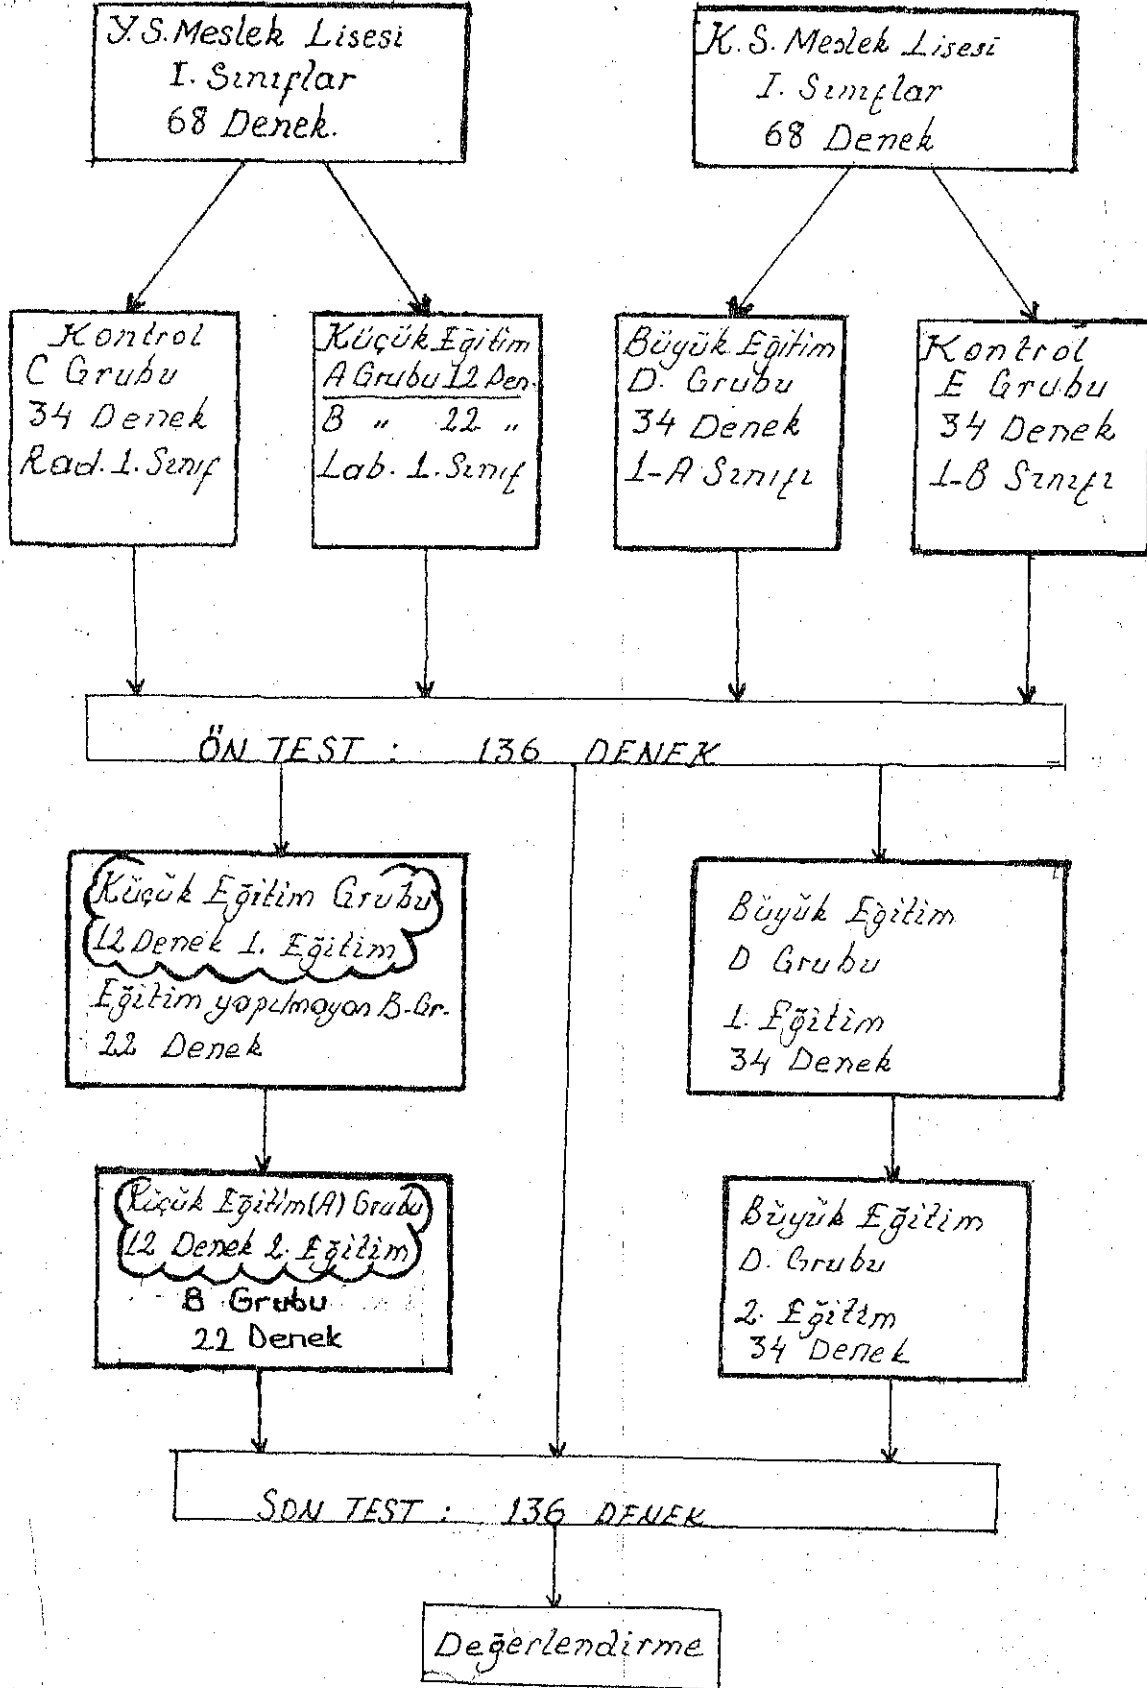 Y.S. Meslek Lisesi
I. Sınıflar
68 Denek.
K.S. Meslek Lisesi
I. Sınıflar
68 Denek
Kontrol
C Grubu
34 Denek
Rad. 1. Sınıf
Küçük Eğitim
A Grubu 12 Den.
B " 22 "
Lab. 1. Sınıf
Büyük Eğitim
D. Grubu
34 Denek
1-A Sınıfı
Kontrol
E Grubu
34 Denek
1-B Sınıfı
ÖN TEST : 136 DENEK
Küçük Eğitim Grubu
12 Denek 1. Eğitim
Eğitim yapılmayan B-Gr.
22 Denek
Büyük Eğitim
D Grubu
1. Eğitim
34 Denek
Küçük Eğitim (A) Grubu
12 Denek 2. Eğitim
B Grubu
22 Denek
Büyük Eğitim
D. Grubu
2. Eğitim
34 Denek
SON TEST : 136 DENEK
Değerlendirme